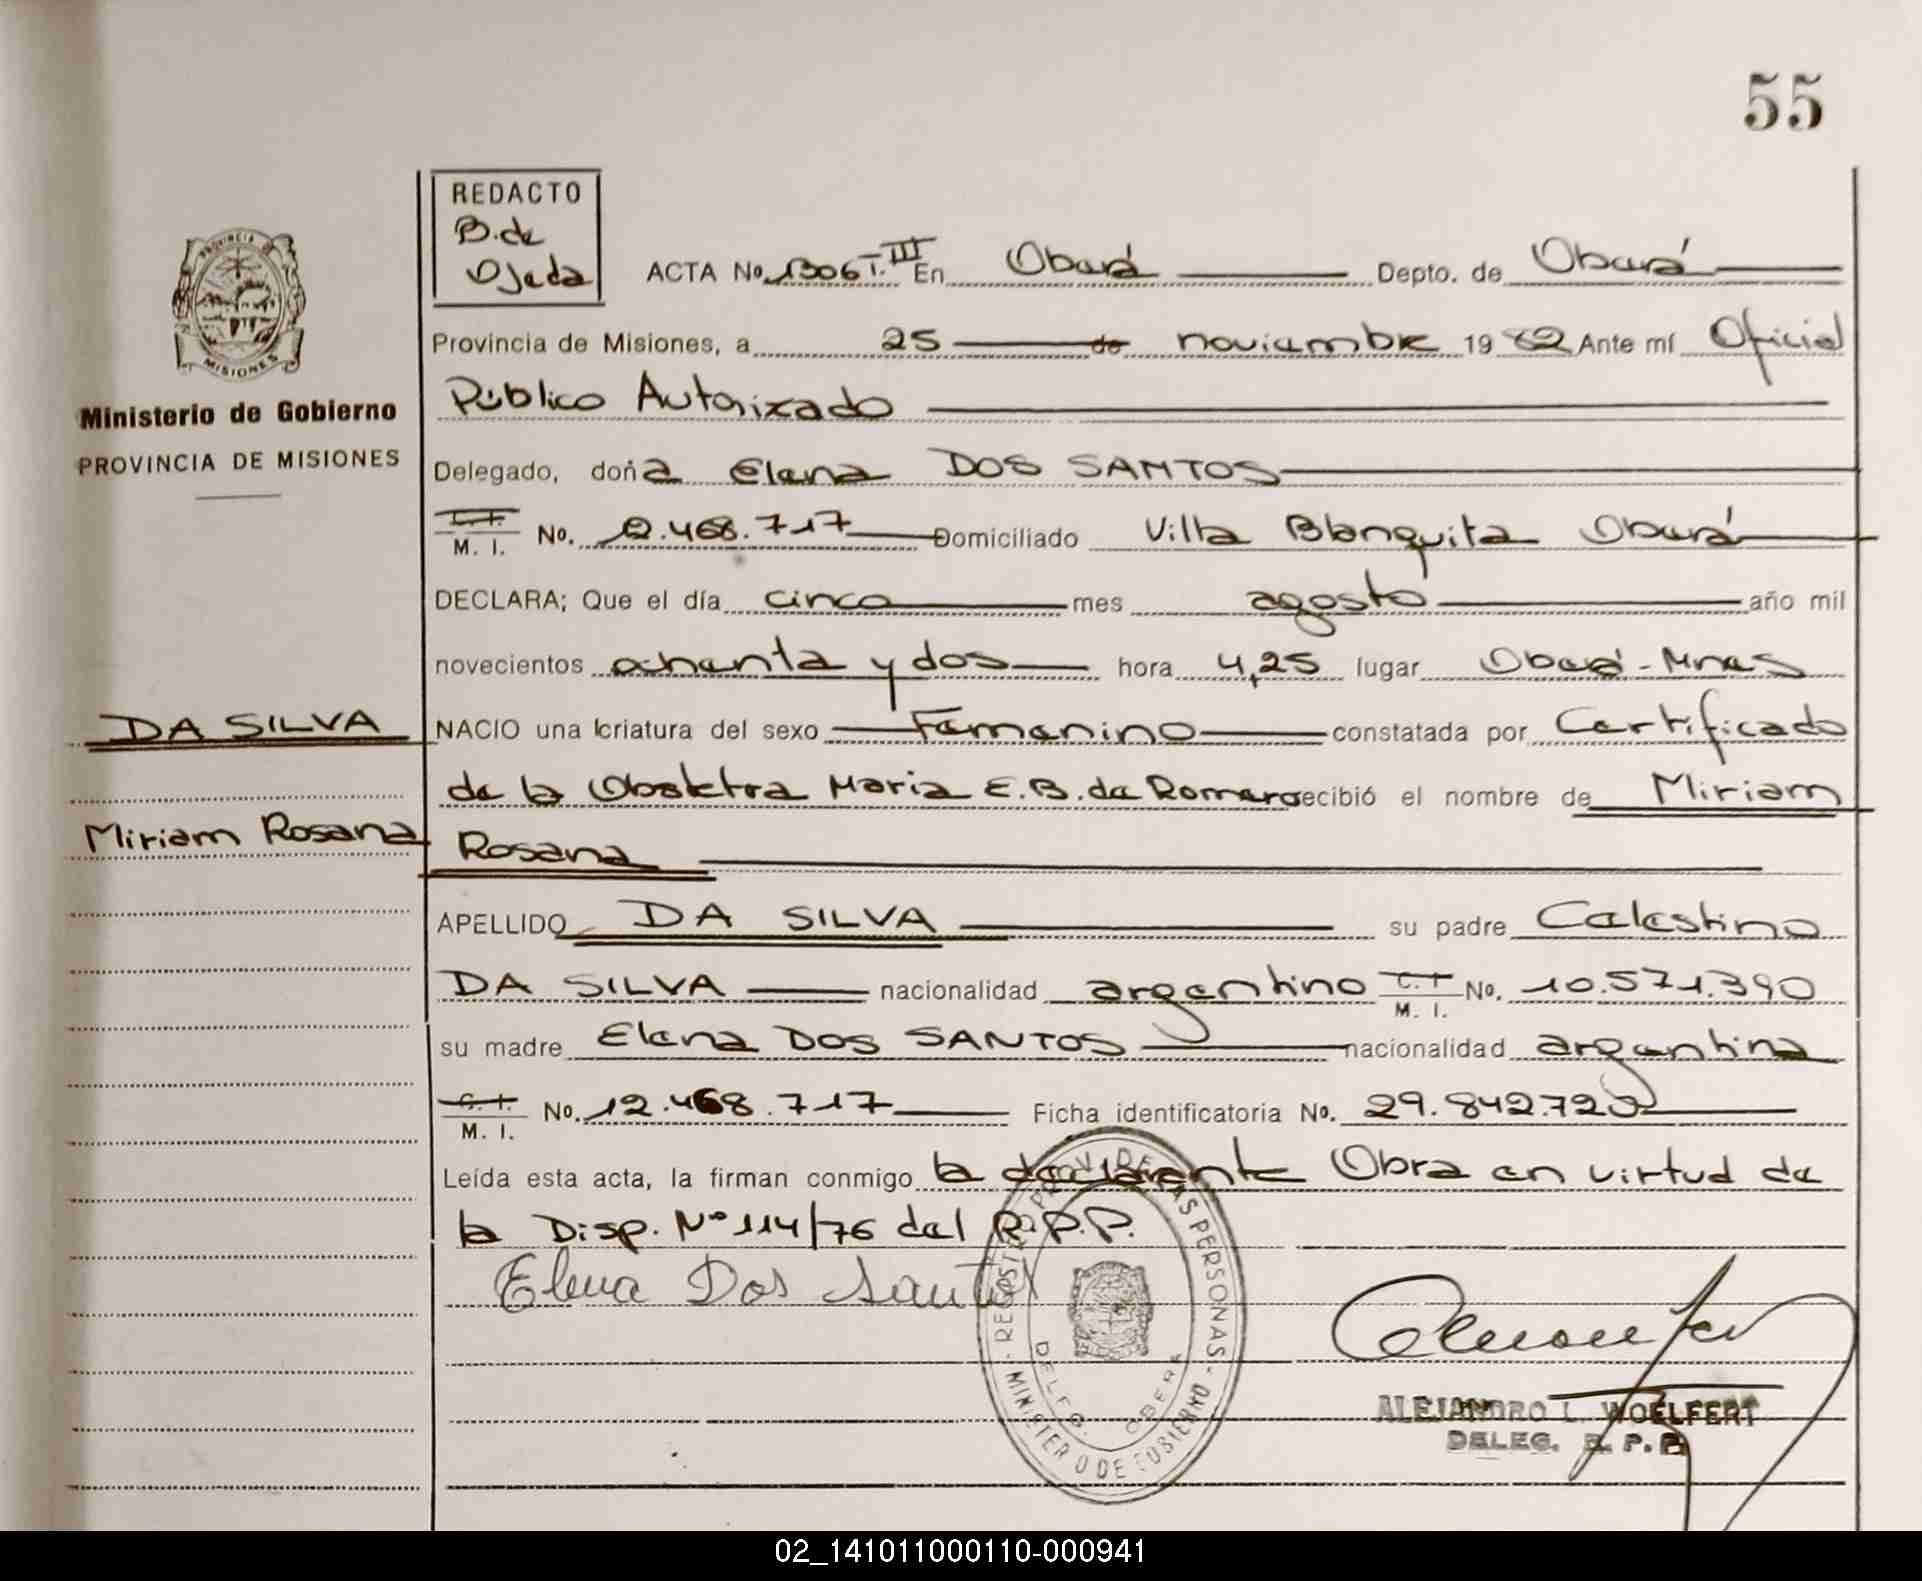 55
REDACTO
B. de
Ojeda
ACTA No. 1306 T. III En Oberá Depto. de Oberá
Provincia de Misiones, a 25 de noviembre 1982 Ante mí Oficial
Público Autorizado
Ministerio de Gobierno
PROVINCIA DE MISIONES
Delegado, doña Elena DOS SANTOS
C. I.
M. I. No. 12.468.717 Domiciliado Villa Blanquita Oberá
DECLARA; Que el día cinco mes agosto año mil
novecientos ochenta y dos hora 4,25 lugar Oberá - Mnes
DA SILVA
NACIO una criatura del sexo Femenino constatada por Certificado
de la Obstetra Maria E. B. de Romero recibió el nombre de Miriam
Miriam Rosana
Rosana
APELLIDO DA SILVA su padre Celestino
DA SILVA nacionalidad argentino C. I. M. I. No. 10.571.390
su madre Elena DOS SANTOS nacionalidad argentina
C. I.
M. I. No. 12.468.717 Ficha identificatoria No. 29.842.729
Leída esta acta, la firman conmigo la declarante Obra en virtud de
la Disp. Nº 114/76 del R.P.P.
Elena Dos Santos
REGISTRO PROV. DE LAS PERSONAS - MINISTERIO DE GOBIERNO
DELEG. OBERA
ALEJANDRO L. WOELFERT
DELEG. R. P. P.
02_141011000110-000941